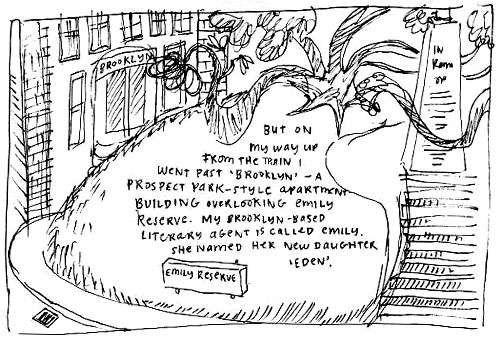 BROOKLYN
IN
OF
BUT ON
MY WAY UP
FROM THE TRAIN I
WENT PAST 'BROOKLYN' – A
PROSPECT PARK-STYLE APARTMENT
BUILDING OVERLOOKING EMILY
RESERVE. MY BROOKLYN-BASED
LITERARY AGENT IS CALLED EMILY.
SHE NAMED HER NEW DAUGHTER
'EDEN'.
EMILY RESERVE